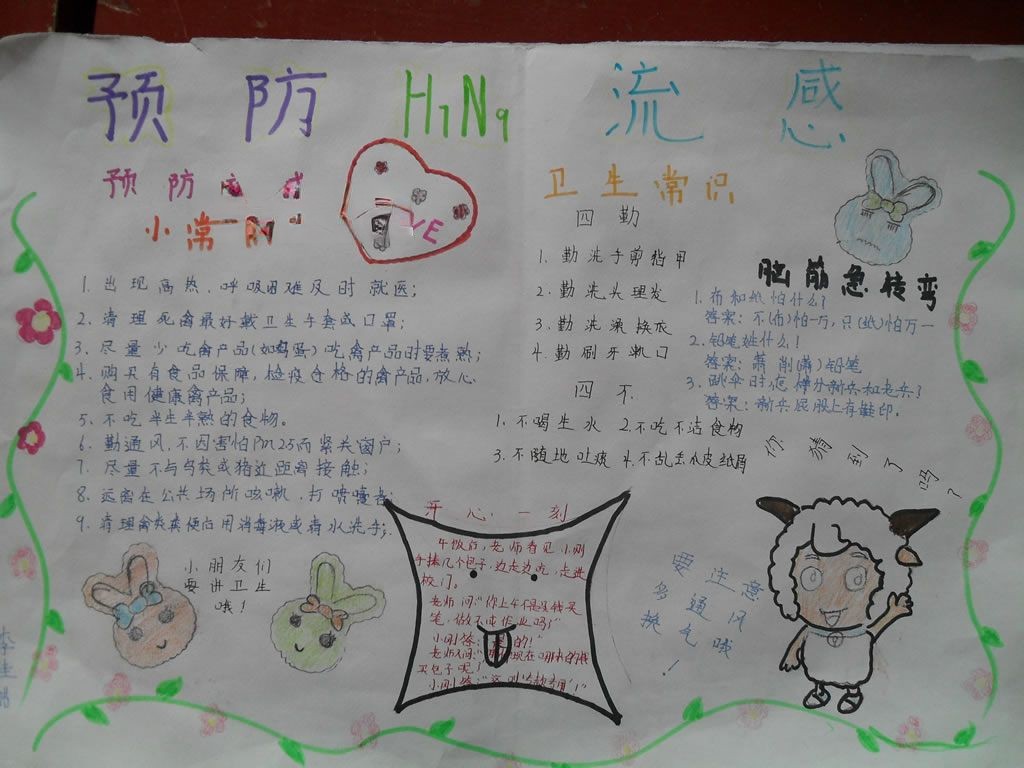 预 防 H7N9 流 感
预 防 流 感
小 常
YE
1. 出现高热、呼吸困难及时就医;
2. 清理死禽最好戴卫生手套或口罩;
3. 尽量少吃禽产品(如鸡蛋)吃禽产品时要煮熟;
4. 购买有食品保障,检疫合格的禽产品,放心
食用健康禽产品;
5. 不吃半生半熟的食物。
6. 勤通风,不因害怕PM2.5而紧关窗户;
7. 尽量不与鸟类或猪近距离接触;
8. 远离在公共场所咳嗽、打喷嚏者;
9. 清理禽类粪便后用消毒液或清水洗手;
小朋友们
要讲卫生
哦!
卫 生 常 识
四 勤
1. 勤洗手剪指甲
2. 勤洗头理发
3. 勤洗澡换衣
4. 勤刷牙漱口
四 不
1. 不喝生水 2. 不吃不洁食物
3. 不随地吐痰 4. 不乱丢瓜皮纸屑
脑筋急转弯
1. 布和纸怕什么?
答案: 不(布)怕一万,只(纸)怕万一
2. 铅笔姓什么!
答案: 萧 削(萧)铅笔
3. 跳伞时,怎样分新兵和老兵?
答案: 新兵屁股上有鞋印。
你 猜 到 了 吗?
开 心 一 刻
午饭后,老师看见小刚
手捧几个包子,边走边吃,走进
校门。
老师问:“你上午不是没钱买
笔,做不成作业吗?”
小刚答: 的!”
老师又问: 现在哪来的钱
买包子呢?
小刚答:
要 注 意
多 通 风
换 气 哦 !
李佳